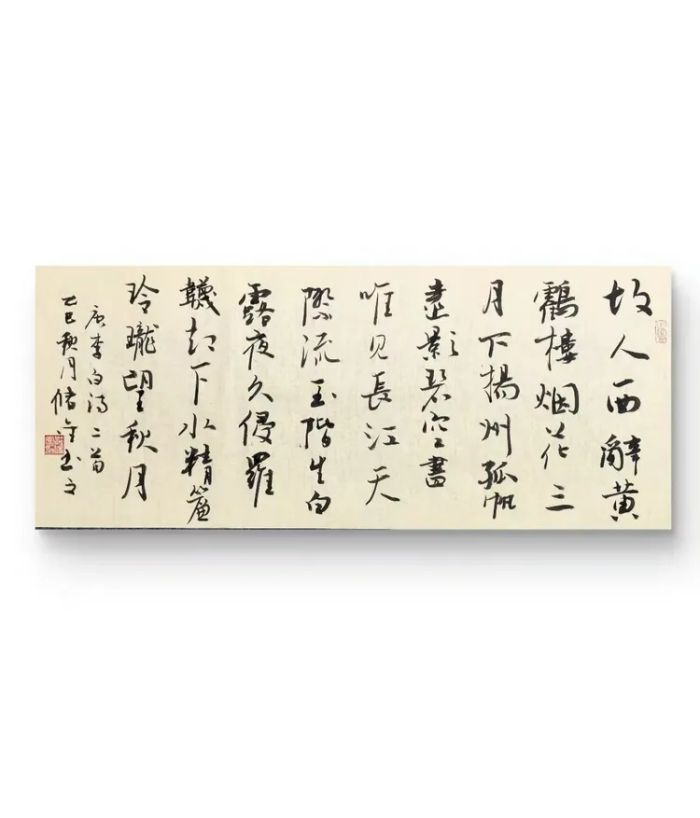 故人西辭黃
鶴樓烟花三
月下揚州孤帆
遠影碧空盡
唯见長江天
際流玉階生白
露夜久侵羅
韈却下水精簾
玲瓏望秋月
唐李白诗二首
乙巳秋月书之